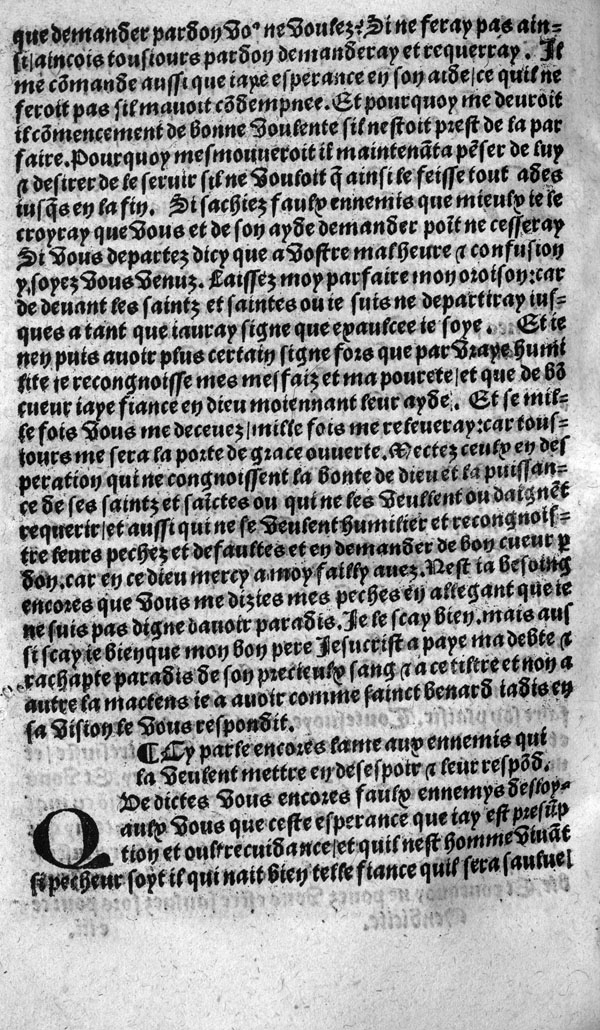 que demander pardon voꝰ ne voulez? Si ne feray pas ain⸗
si/aincois tousiours pardon demanderay et requerray. Il
me cõmande aussi que iaye esperance en son aide/ce quil ne
feroit pas sil mauoit cõdempnee. Et pourquoy me deuroit
il cõmencement de bonne voulente sil nestoit prest de la par
faire. Pourquoy mesmouueroit il maintenãt a pẽser de luy
⁊ desirer de le seruir sil ne vouloit q̃ ainsi le feisse tout ades
iusq̃s en la fin. Si sachiez faulx ennemis que mieulx ie le
croyray que vous et de son ayde demander poĩt ne cesseray
Si vous departez dicy que a vostre malheure ⁊ confusion
y soyez vous venuz. Laissez moy parfaire mon oroison: car
de deuant les saintz et saintes ou ie suis ne departiray ius⸗
ques a tant que iauray signe que exaulcee ie soye. Et ie
nen puis auoir plus certain signe fors que par vraye humi
lite ie recongnoisse mes mesfaiz et ma pourete/et que de bõ
cueur iaye fiance en dieu moiennant leur ayde. Et se mil⸗
le fois vous me deceuez/mille fois me releueray: car tous⸗
iours me sera la porte de grace ouuerte. Mectez ceulx en des
peration qui ne congnoissent la bonte de dieu et la puissan⸗
ce de ses saintz et saĩctes ou qui ne les veullent ou daignẽt
requerir/et aussi qui ne se veulent humilier et recongnois⸗
tre leurs pechez et defaultes et en demander de bon cueur ꝑ
don. car en ce dieu mercy a moy failly auez. Nest ia besoing
encores que vous me dizies mes peches en allegant que ie
ne suis pas digne dauoir paradis. Je le scay bien. mais aus
si scay ie bien que mon bon pere Jesucrist a paye ma debte ⁊
rachapte paradis de son precieulx sang ⁊ a ce tiltre et non a
autre la mactens ie a auoir comme sainct benard iadis en
sa vision le vous respondit.
¶ Cy parle encores lame aux ennemis qui
la veulent mettre en desespoir ⁊ leur respõd.
Que dictes vous encores faulx ennemys desloy⸗
aulx vous que ceste esperance que iay est presũp
tion et oultrecuidance/et quil nest homme viuãt
si pecheur soyt il qui nait bien telle fiance quil sera sauluel